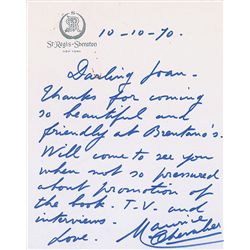 St. Regis-Sheraton
NEW YORK
10-10-70.
Darling Joan.
Thanks for coming
so beautiful and
friendly at Brentano's.
Will come to see you
when not so pressured
about promotion of
the book. T.V. and
interviews.
Love. Maurice
Chevalier